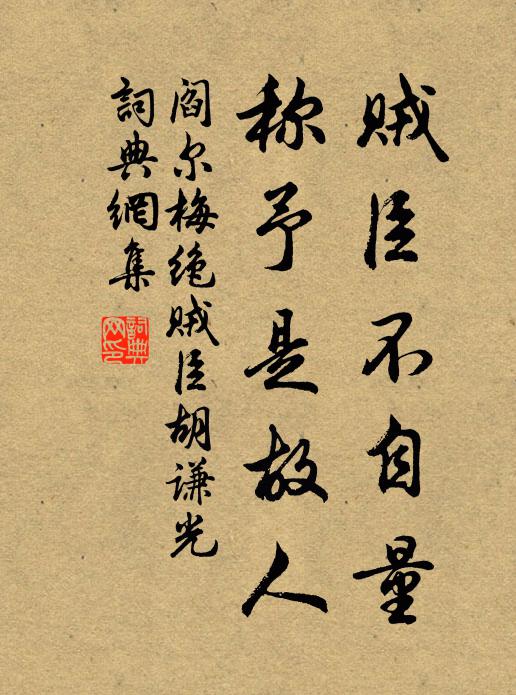 贼臣不自量
称予是故人
阎尔梅绝贼臣胡谦光
詞典網集
詞典
网印